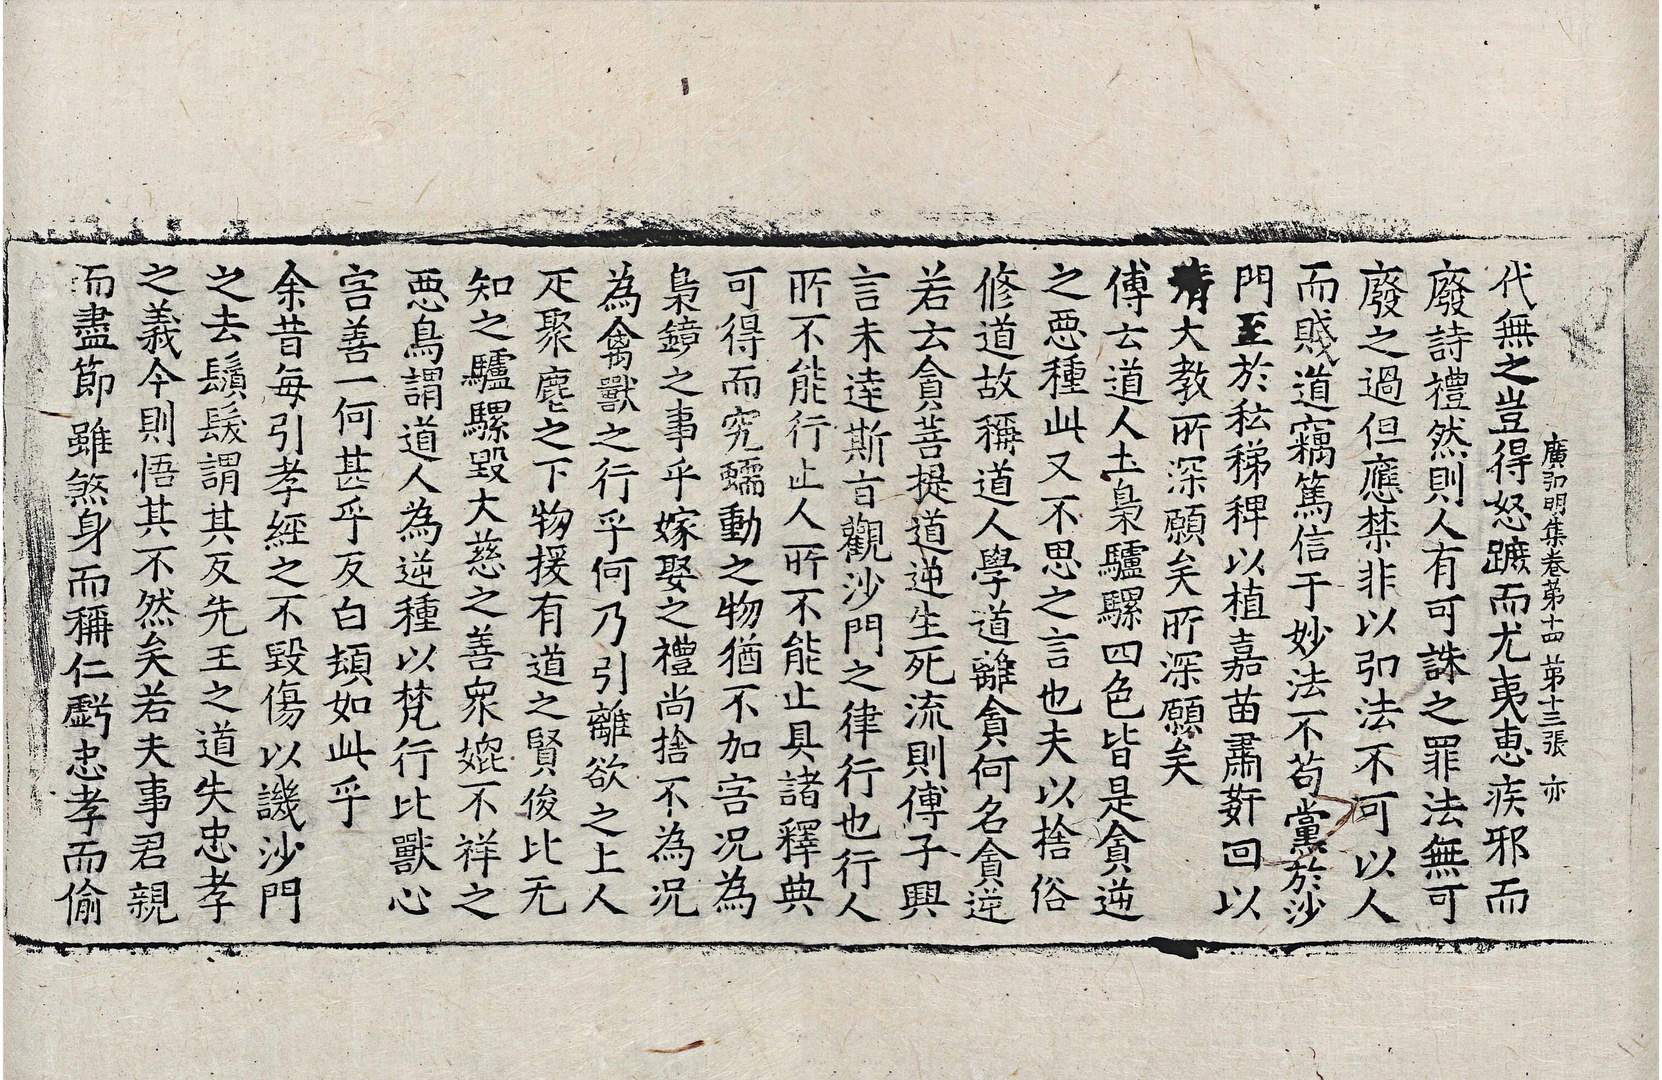 廣弘明集卷第十四　第十三張　亦
代無之豈得怒蹠而尤夷恵疾邪而
廢詩禮然則人有可誅之罪法無可
廢之過但應禁非以弘法不可以人
而賤道竊篤信于妙法不苟黨於沙
門至於秐稊稗以植嘉苗肅姧回以
清大教所深願矣所深願矣
傅云道人土梟驢騾四色皆是貪逆
之惡種此又不思之言也夫以捨俗
修道故稱道人學道離貪何名貪逆
若云貪菩提道逆生死流則傅子興
言未逹斯旨觀沙門之律行也行人
所不能行止人所不能止具諸釋典
可得而究蠕動之物猶不加害況為
梟鏡之事乎嫁娶之禮尚捨不為況
為禽獸之行乎何乃引離欲之上人
疋聚塵之下物援有道之賢俊比无
知之驢騾毀大慈之善衆媲不祥之
惡鳥謂道人為逆種以梵行比獸心
害善一何甚乎反白㨽如此乎
余昔每引孝經之不毀傷以譏沙門
之去鬚髮謂其反先王之道失忠孝
之義今則悟其不然矣若夫事君親
而盡節雖煞身而稱仁虧忠孝而偷